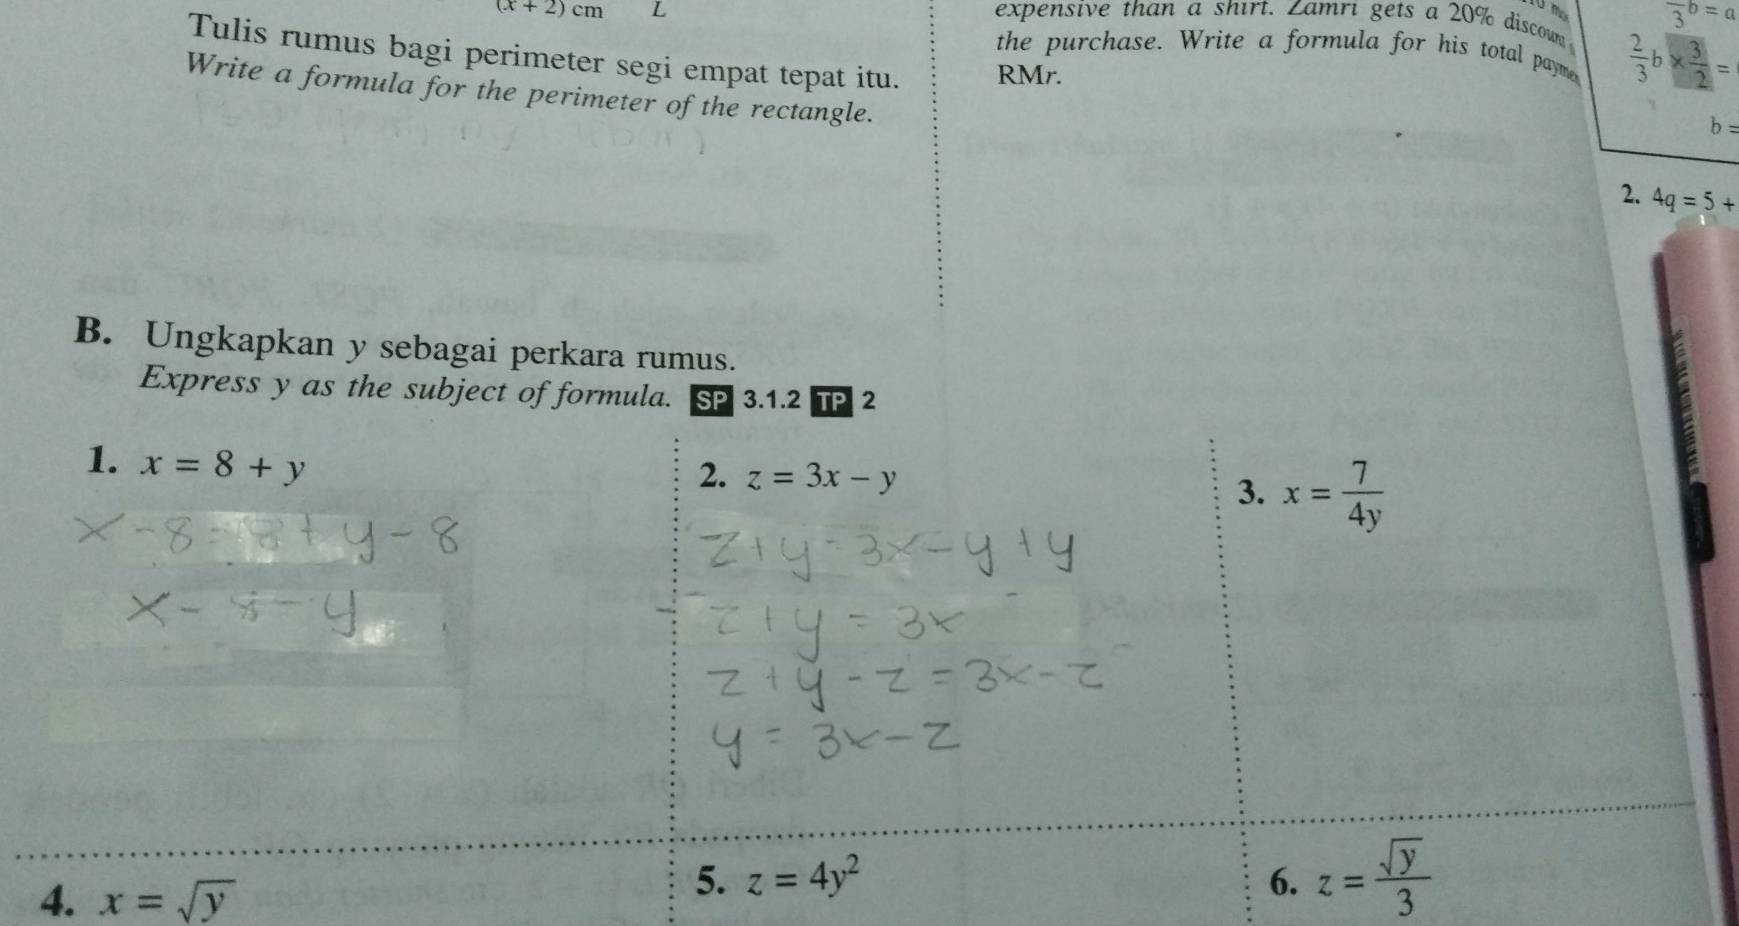 (x + 2) cm L
Tulis rumus bagi perimeter segi empat tepat itu.
Write a formula for the perimeter of the rectangle.
expensive than a shirt. Zamri gets a 20% discount
the purchase. Write a formula for his total payme
RMr.
3 b = a
2/3 b × 3/2 =
b =
2. 4q = 5 +
B. Ungkapkan y sebagai perkara rumus.
Express y as the subject of formula. SP 3.1.2 TP 2
1. x = 8 + y
x - 8 = 8 + y - 8
x - 8 = y
2. z = 3x − y
z + y = 3x - y + y
z + y = 3x
z + y - z = 3x - z
y = 3x - z
3. x = 7/4y
4. x = √y
5. z = 4y²
6. z = √y/3